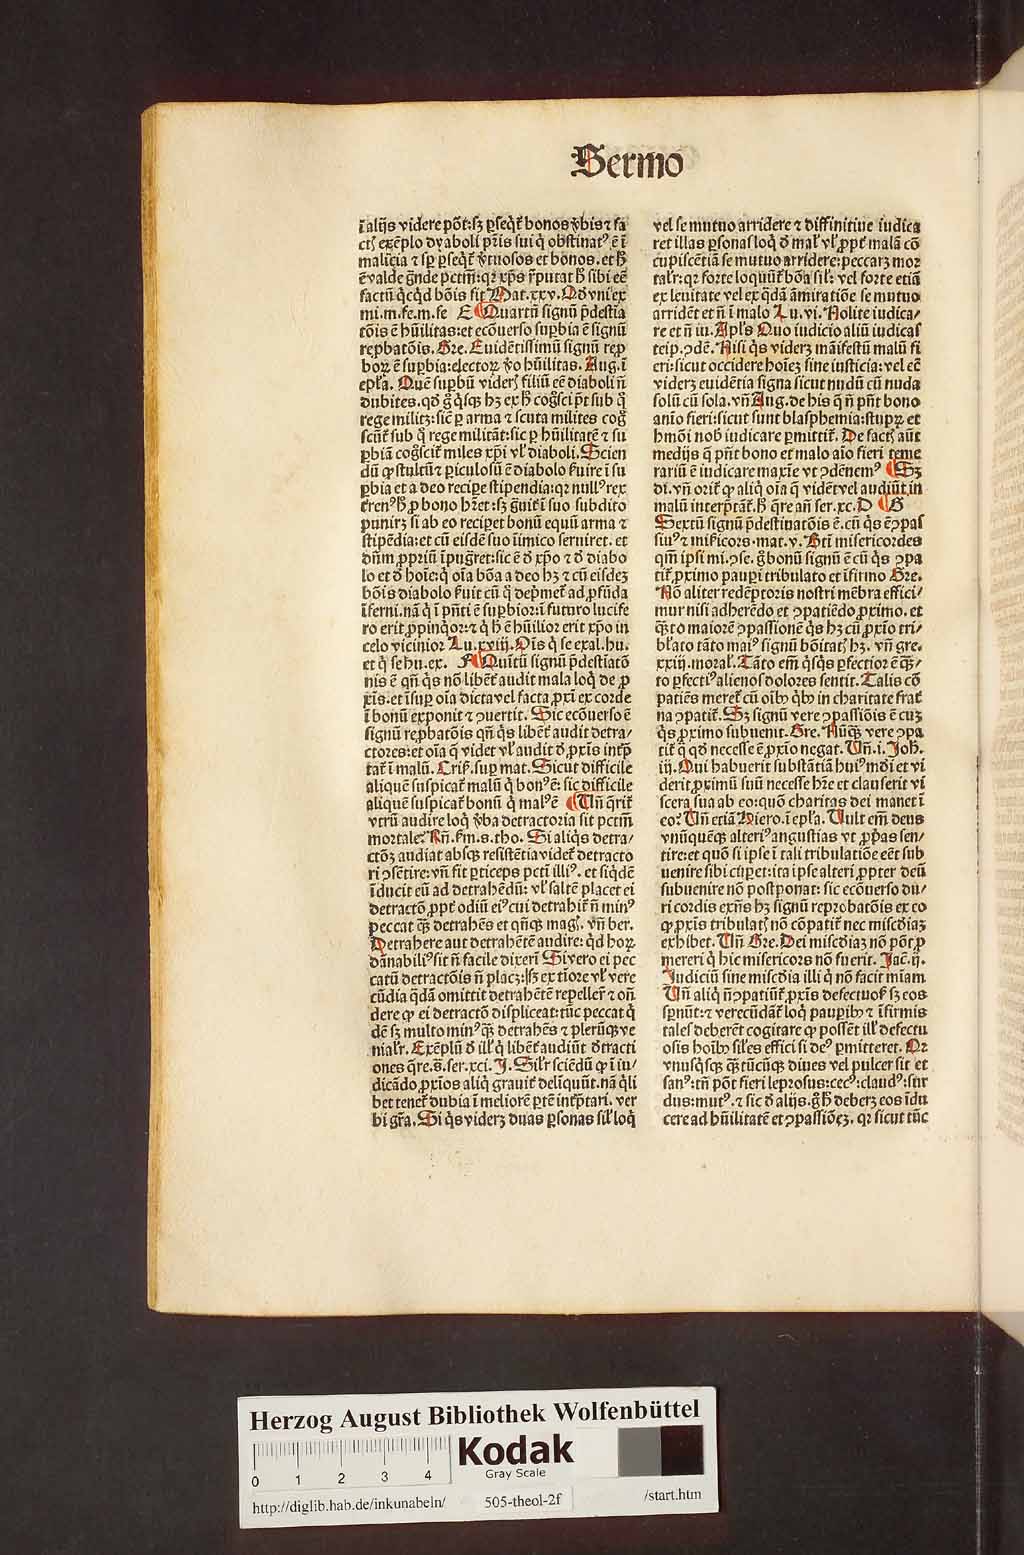 Sermo
ī alijs videre põt: sʒ ꝑseqr̃ bonos v̉bis ⁊ fa
ctꝭ exẽplo dyaboli p̃ris sui q̇ obstinatꝰ ē ī
malicia ⁊ sꝑ ꝑseqr̃ v̉tuosos et bonos. et h̃
ē valde g̃nde pctm̃: qꝛ xp̃s r̃putat h̃ sibi eē
factū q̇cq̇d bõis fit Mat. xxv. Qd̓ vni ex
mi. m. fe. m. fe E Quartū signū p̃destia
tõis ē hũilitas: et ecõuerso suꝑbia ē signū
reꝓbatõis. Gre. Euidẽtissimū signū reꝓ
boꝝ ē suꝑbia: electoꝝ v̉o hũilitas. Aug. ī
ep̃la. Quē suꝑbū viderꝭ filiū eē diaboli ñ
dubites. qd̓ g̃ q̇sqꝫ hʒ ex h̃ cog̃sci p̃t sub q̇
rege militʒ: sic̃ ꝑ arma ⁊ scuta milites cog̃
scūt̃ sub q̇ rege militãt: sic ꝑ hũilitatē ⁊ su
ꝑbiã cog̃scit̃ miles xp̃i vl̓ diaboli. Scien
dū ꝙ stultū ⁊ ꝑiculosū ē diabolo s̓uire ī su
ꝑbia et a deo reciꝑe stipendia: qꝛ nullꝰ rex
t̓renꝰ h̃ ꝓ bono hr̃et: sʒ g̃uit̓ ī suo subdito
punirʒ si ab eo reciꝑet bonū equū arma ⁊
stipẽdia: et cū eisdē suo inimico seruiret. et
dñm ꝓpriū īpug̃ret: sic ē d̓ xp̃o ⁊ d̓ diabo
lo et d̓ hoīe: q̇ oīa bõa a deo hʒ ⁊ cū eisdeʒ
bõis diabolo s̓uit cū q̇ dep̃met̃ ad ꝓfũda
īferni. nã q̇ ī pñti ē suꝑbior: ī futuro lucife
ro erit ꝓpinqͦor: ⁊ q̇ h̃ ē hũilior erit xp̃o in
celo vicinior Lu. xviij. Oĩs q̇ se exal. hu.
et q̇ se hu. ex. F Quītū signū p̃destiatõ
nis ē qñ q̇s nõ libēt̃ audit mala loq̇ de ꝓ
xīs. et īsuꝑ oīa dicta vel facta ꝓxī ex corde
ī bonū exponit ⁊ ꝯuertit. Sic ecõuerso ē
signū reꝓbatõis qñ q̇s libēt̃ audit detra⸗
ctores: et oīa q̄ videt vl̓ audit d̓ ꝓxīs int̓p
tat̃ ī malū. Cris̓. suꝑ mat. Sicut difficile
aliquē suspicat̃ malū q̇ bonꝰ ē: sic difficile
aliquē suspicat̃ bonū q̇ malꝰ ē Uñ q̄rit̃
vtrū audire loq̇ v̉ba detractoria sit pctm̃
mortale? Rñ. s̓m. s. tho. Si aliq̇s detra⸗
ctõʒ audiat absqꝫ resistẽtia videt̃ detracto
ri ꝯsētire: vñ fit ꝑticeps pcti illiꝰ. et siq̇dē
īducit eū ad detrahẽdū: vl̓ saltē placet ei
detractõ ꝓpt̓ odiū eiꝰ cui detrahit̃ ñ minꝰ
peccat qꝫ detrahẽs et qñqꝫ magꝭ. vñ ber.
Detrahere aut detrahētē audire: qd̓ hoꝝ
dãnabiliꝰ sit ñ facile dixeri Si vero ei pec
catū detractõis ñ placʒ: sʒ ex tīore vl̓ vere
cūdia q̇dã omittit detrahētē repeller̃ ⁊ oñ
dere ꝙ ei detractõ displiceat: tūc peccat q̇
dē sʒ multo minꝰ qꝫ detrahẽs ⁊ plerūqꝫ ve
nialr̓. Exēplū d̓ ill̓ q̇ libēt̃ audiūt d̓tracti
ones q̄re. s̃. ser. xci. J. Silr̓ sciẽdū ꝙ ī iu⸗
dicãdo ꝓxīos aliq̇ grauit̓ delīqūut. nã q̇li
bet tenet̃ dubia ī meliorē ꝑtē int̓ptari. ver
bi gr̃a. Si q̇s viderʒ duas ꝑsonas sil̓ loq̇
vel se mutuo arridere ⁊ diffinitiue iudica
ret illas ꝑsonas loq̇ d̓ mal̓ vl̓ ꝓpt̓ malã cõ
cupiscētiã se mutuo arridere: peccarʒ mor
talr̓: qꝛ forte loquūt̃ bõa sil̓: vel forte etiã
ex leuitate vel ex q̇dã ãmiratiõe se mutuo
arridēt et ñ ī malo Lu. vi. Nolite iudica⸗
re et ñ iu. Apl̓s Quo iudicio aliū iudicas
teip. ꝯdē. Nisi q̇s viderʒ mãifestū malū fi
eri: sicut occidere hoīeʒ sine iusticia: vel eē
viderʒ euidētia signa sicut nudū cū nuda
solū cū sola. vñ Aug. de his q̄ ñ pñt bono
anīo fieri: sicut sunt blasphemia: stupꝝ et
hmõi nob̓ iudicare ꝑmittit̃. De factꝭ aūt
medijs q̄ pñt bono et malo aīo fieri teme
rariū ē iudicare maxīe vt ꝯdēnemꝰ Sʒ
di. vñ orit̃ ꝙ aliq̇ oīa q̄ vidēt vel audiūt in
malū interp̃tãt̃. h̃ q̄re añ ser. xc. D G
Sextū signū p̃destinatõis ē. cū q̇s ē ꝯpas
siuꝰ ⁊ mīs̓icors. mat. v. Bt̃i misericordes
qm̃ ipsi mi. ꝯse. g̃ bonū signū ē cū q̇s ꝯpa
tit̃ ꝓximo pauꝑi tribulato et īfirmo Gre.
Nõ aliter redēptoris nostri mēbra effici⸗
mur nisi adherēdo et ꝯpatiēdo ꝓximo. et
qꝫto maiorē ꝯpassionē q̇s hʒ cū ꝓxīo tri⸗
bl̓ato tãto maiꝰ signū bõitatꝭ hʒ. vñ gre.
xxiij. moral̓. Tãto em̃ q̇sq̇s ꝑfectior ē qꝫ⸗
to ꝑfectiꝰ alienos dolores sentit. Talis cõ
patiēs meret̃ cū oĩbꝫ q̇bꝫ in charitate frat̓
na ꝯpatit̃. Sʒ signū vere ꝯpassiõis ē cuʒ
q̇s ꝓximo subuenit. Gre. Nūqꝫ vere ꝯpa
tit̃ q̇ qd̓ necesse ē ꝓxīo negat. Uñ. i. Joh.
iij. Qui habuerit substãtiã huiꝰ mūdi et vi
derit ꝓximū suū necesse hr̃e et clauserit vi
scera sua ab eo: quõ charitas dei manet ī
eo? Uñ etiã Hiero. ī ep̃la. Uult em̃ deus
vnūquēqꝫ alteriꝰ angustias vt ꝓp̃as sen⸗
tire: et quõ si ipse ī tali tribulatiõe eēt sub
uenire sibi cuꝑet: ita ipse alteri ꝓpter deū
subuenire nõ postponat: sic ecõuerso du⸗
ri cordis exñs hʒ signū reprobatõis ex eo
ꝙ ꝓxīs tribulatꝭ nõ cõpatit̃ nec mīscdīaʒ
exhibet. Uñ Gre. Dei mīscdīaʒ nõ põt ꝓ
mereri q̇ hic misericors nõ fuerit. Jac̓. ij.
Judiciū sine mīscdīa illi q̇ nõ facit mīam
Uñ aliq̇ ñ ꝯpatiūt̃ ꝓxīs defectuos̓ sʒ eos
sꝑnūt: ⁊ verecūdãt̃ loq̇ pauꝑibꝫ ⁊ īfirmis
tales deberēt cogitare ꝙ possēt ill̓ defectu
osis hoĩbꝫ sil̓es effici si deꝰ ꝑmitteret. Qꝛ
vnusq̇sqꝫ qꝫtūcūqꝫ diues vel pulcer sit et
sanꝰ: tñ põt fieri leprosus: cecꝰ: claudꝰ: sur
dus: mutꝰ. ⁊ sic d̓ alijs. g̃ h̃ deberʒ eos īdu
cere ad hũilitatē et ꝯpassiõeʒ. qꝛ sicut tūc
Herzog August Bibliothek Wolfenbüttel
0 1 2 3 4
Kodak
Gray Scale
http://diglib.hab.de/inkunabeln/ 505-theol-2f /start.htm